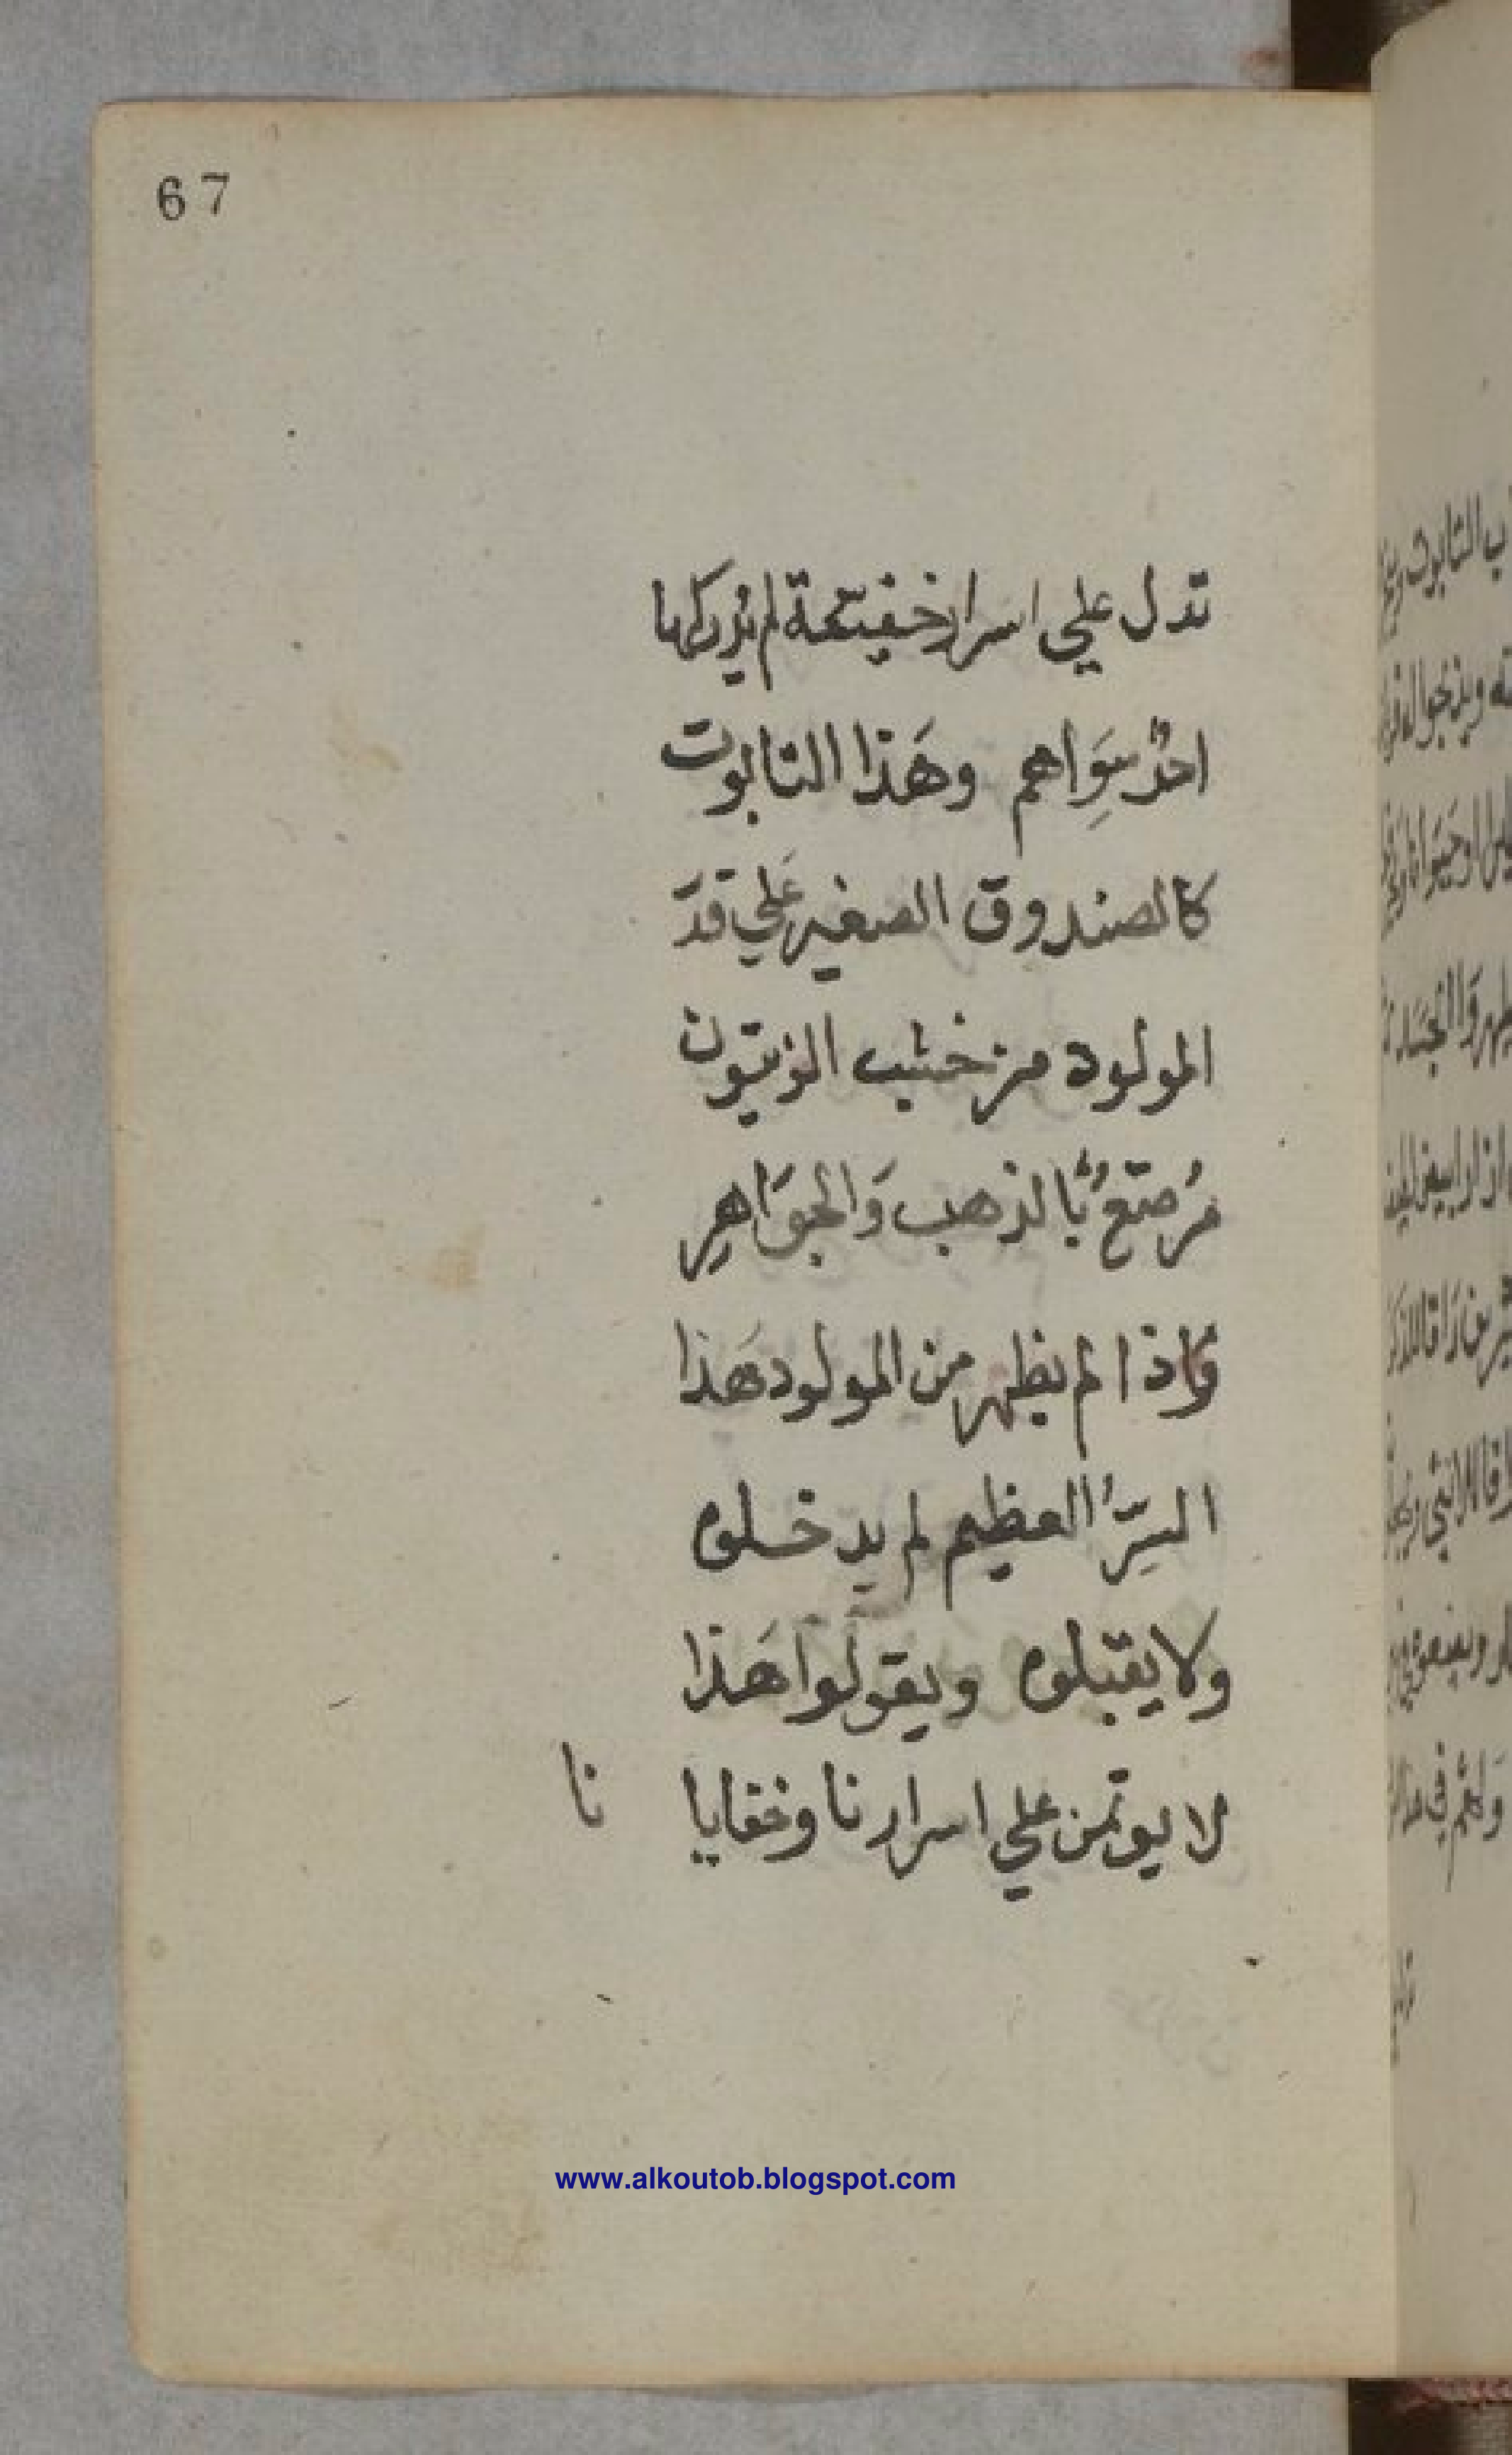 67
تدل علي اسرار خفيّة لم يُدركها
احدٌ سِوَاهم وهَذا التابوت
كالصندوق الصغير عَلي قدّ
المولود من خشب الزيتون
مُرصّعٌ بالذهب وَالجوَاهِر
فاذا لم يظهر من المولود هَذا
السِرُّ العظيم لم يدخلوه
ولا يقبلوه ويقولوا هَذا
لا يوتمن علي اسرارنا وخفايا نا
www.alkoutob.blogspot.com